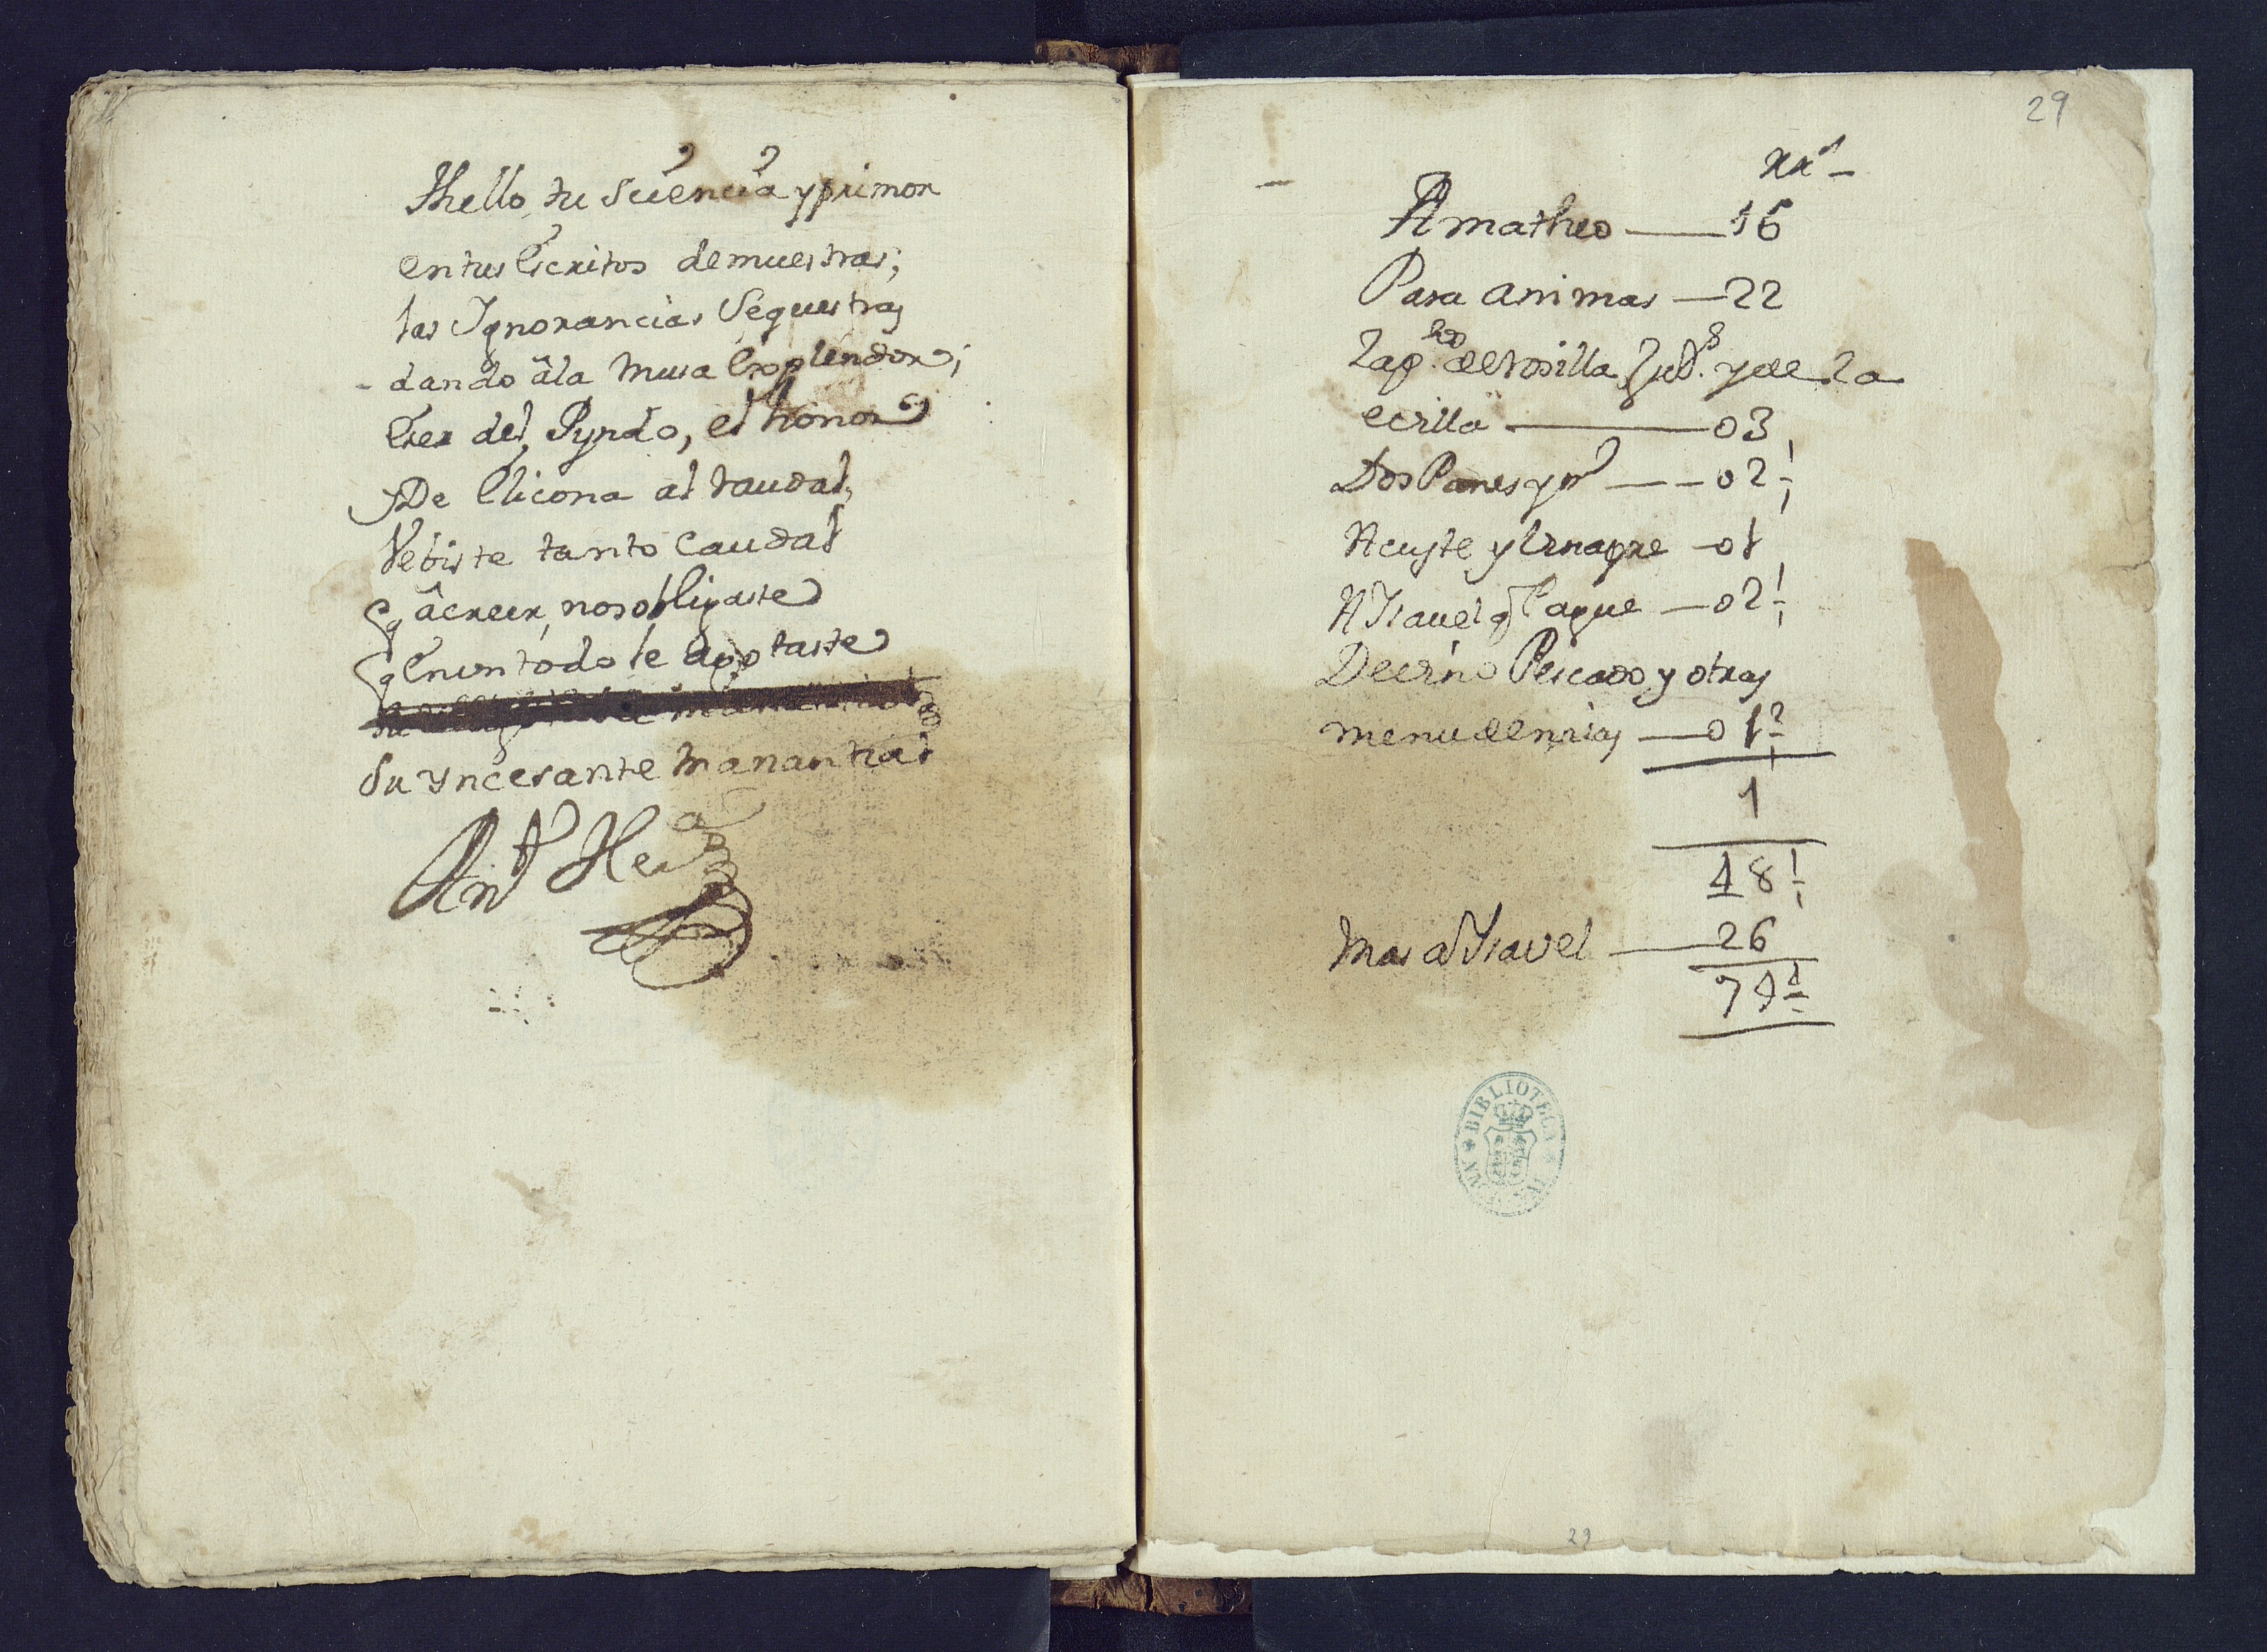 Thello, tu sciencia y primor
en tus Escritos demuestras;
las Ygnorancias Sequestras
dando âla Musa Explendor;
Eres del Pyndo, el honor
De Elicona al raudal,
Vebiste tanto Caudal
q âcreer, nos obligaste
q En un todo le agotaste
Su yncesante Manantial
Ant.º
29
A matheo — 16
Para animas — 22
y de la
ecilla — 03
Dos Panes y — 02
Aceyte y Vinagre — 01
A Ysavel q — 02
Pescado y otras
menudencias — 01
1
48
Mas a Ysavel — 26
74
BIBLIOTECA
29